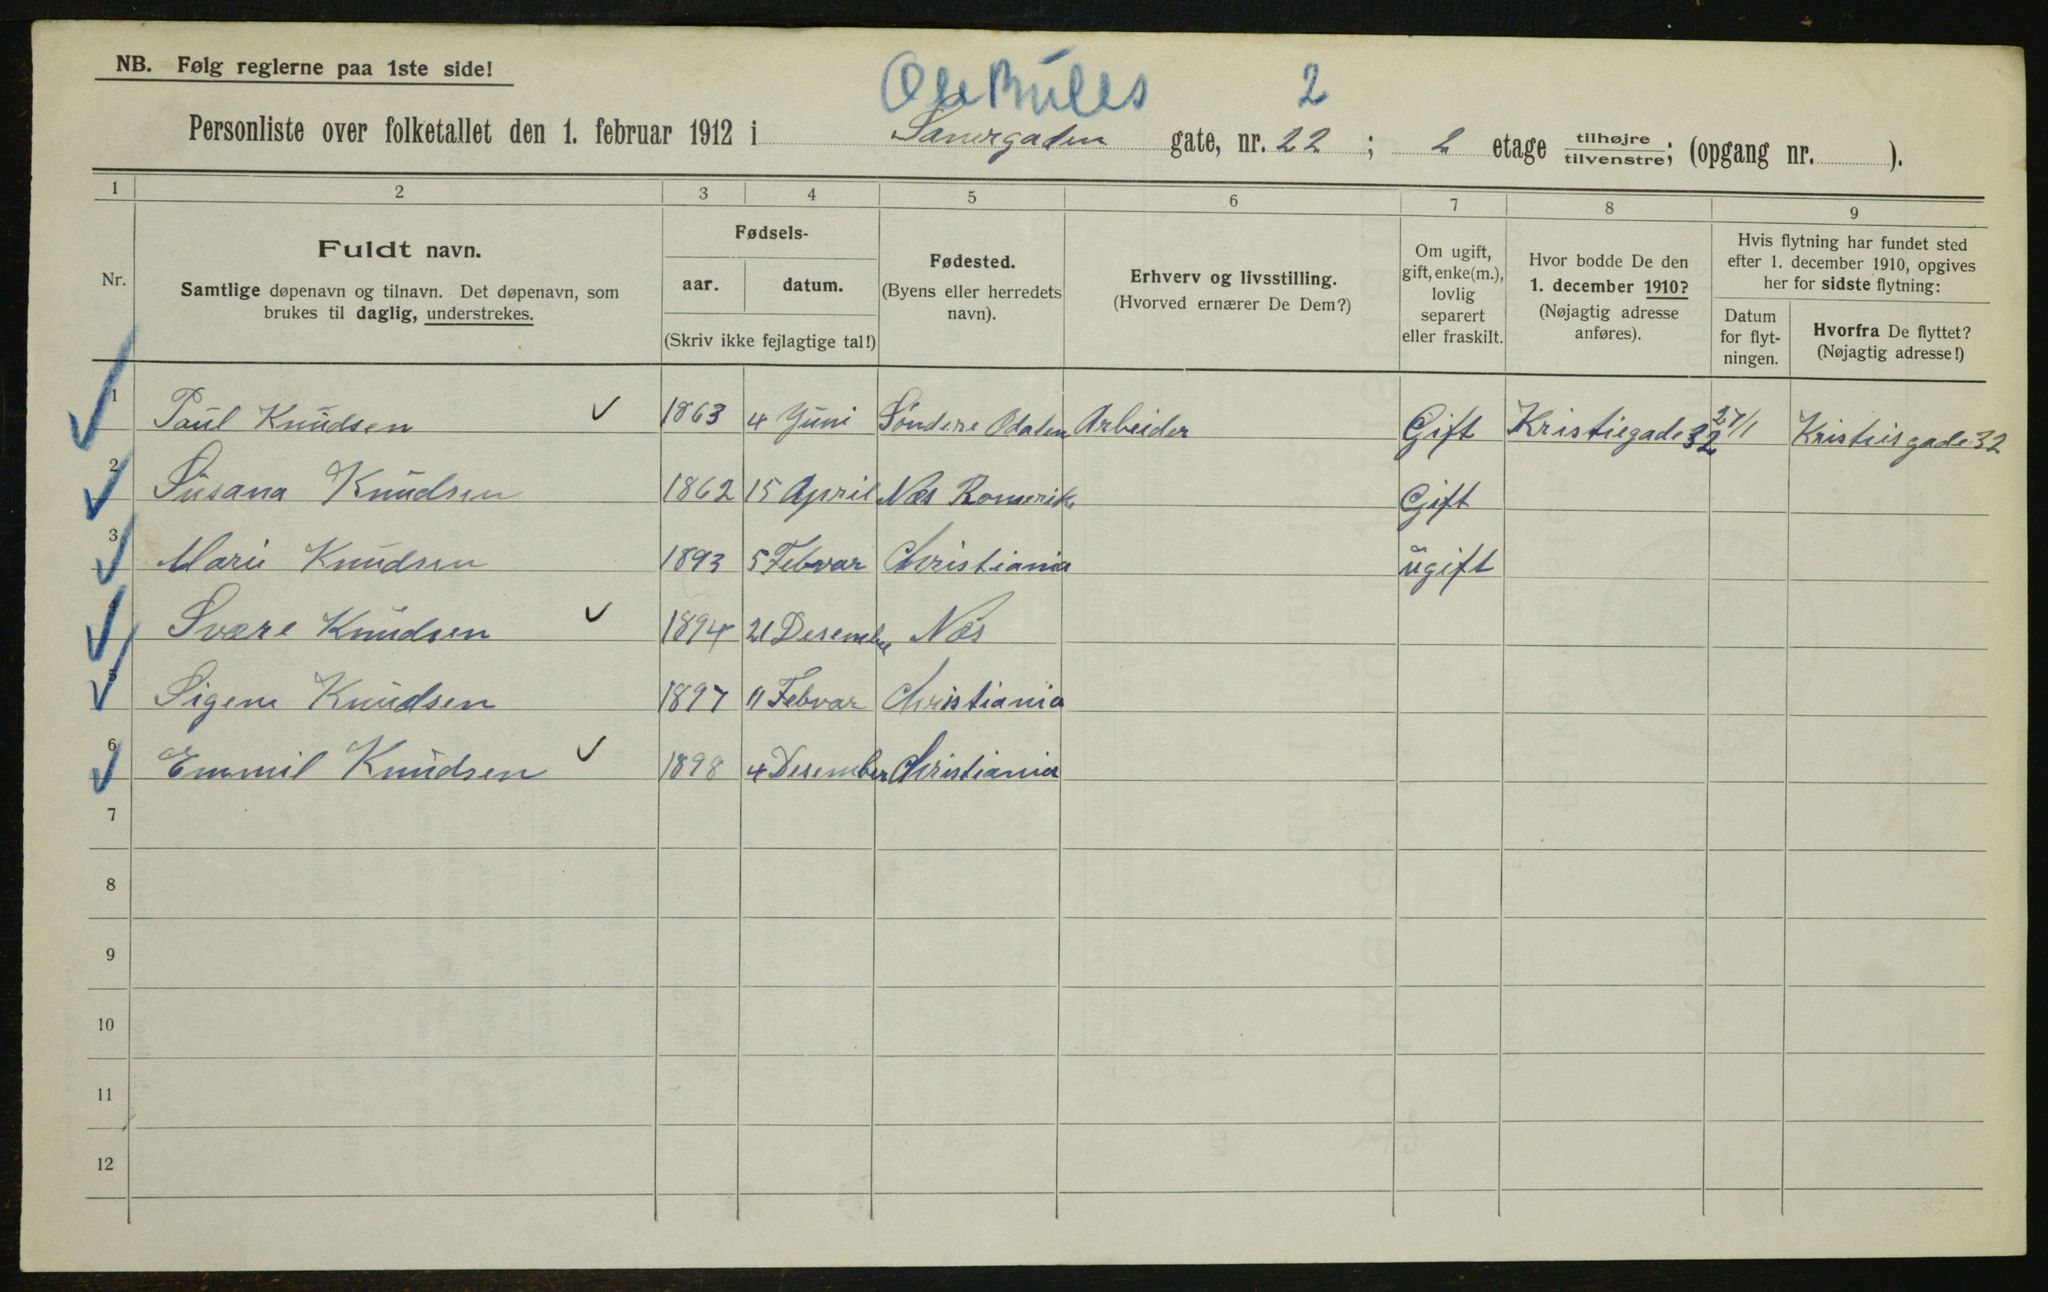 NB. Følg reglerne paa 1ste side!
Ole Bulls 2
Personliste over folketallet den 1. februar 1912 i Sanergaden gate, nr. 22 ; 2 etage tilhøjre tilvenstre; (opgang nr. ).
1 2 3 4 5 6 7 8 9
Nr.
Fuldt navn.
Samtlige døpenavn og tilnavn. Det døpenavn, som
brukes til daglig, understrekes.
Fødsels-
aar. datum.
(Skriv ikke fejlagtige tal!)
Fødested.
(Byens eller herredets
navn).
Erhverv og livsstilling.
(Hvorved ernærer De Dem?)
Om ugift,
gift, enke(m.),
lovlig
separert
eller fraskilt.
Hvor bodde De den
1. december 1910?
(Nøjagtig adresse
anføres).
Hvis flytning har fundet sted
efter 1. december 1910, opgives
her for sidste flytning:
Datum
for flyt-
ningen.
Hvorfra De flyttet?
(Nøjagtig adresse!)
1 Paul Knudsen 1863 4 Yuni Søndere Odalen Arbeider Gift Kristiegade 32 27/1 Kristiisgade 32
2 Susana Knudsen 1862 15 April Næs Romerike Gift
3 Marie Knudsen 1893 5 Febvar Christiania ugift
4 Svære Knudsen 1894 21 Desember Næs
5 Signe Knudsen 1897 11 Febvar Christiania
6 Emmil Knudsen 1898 4 Desember Christiania
7
8
9
10
11
12